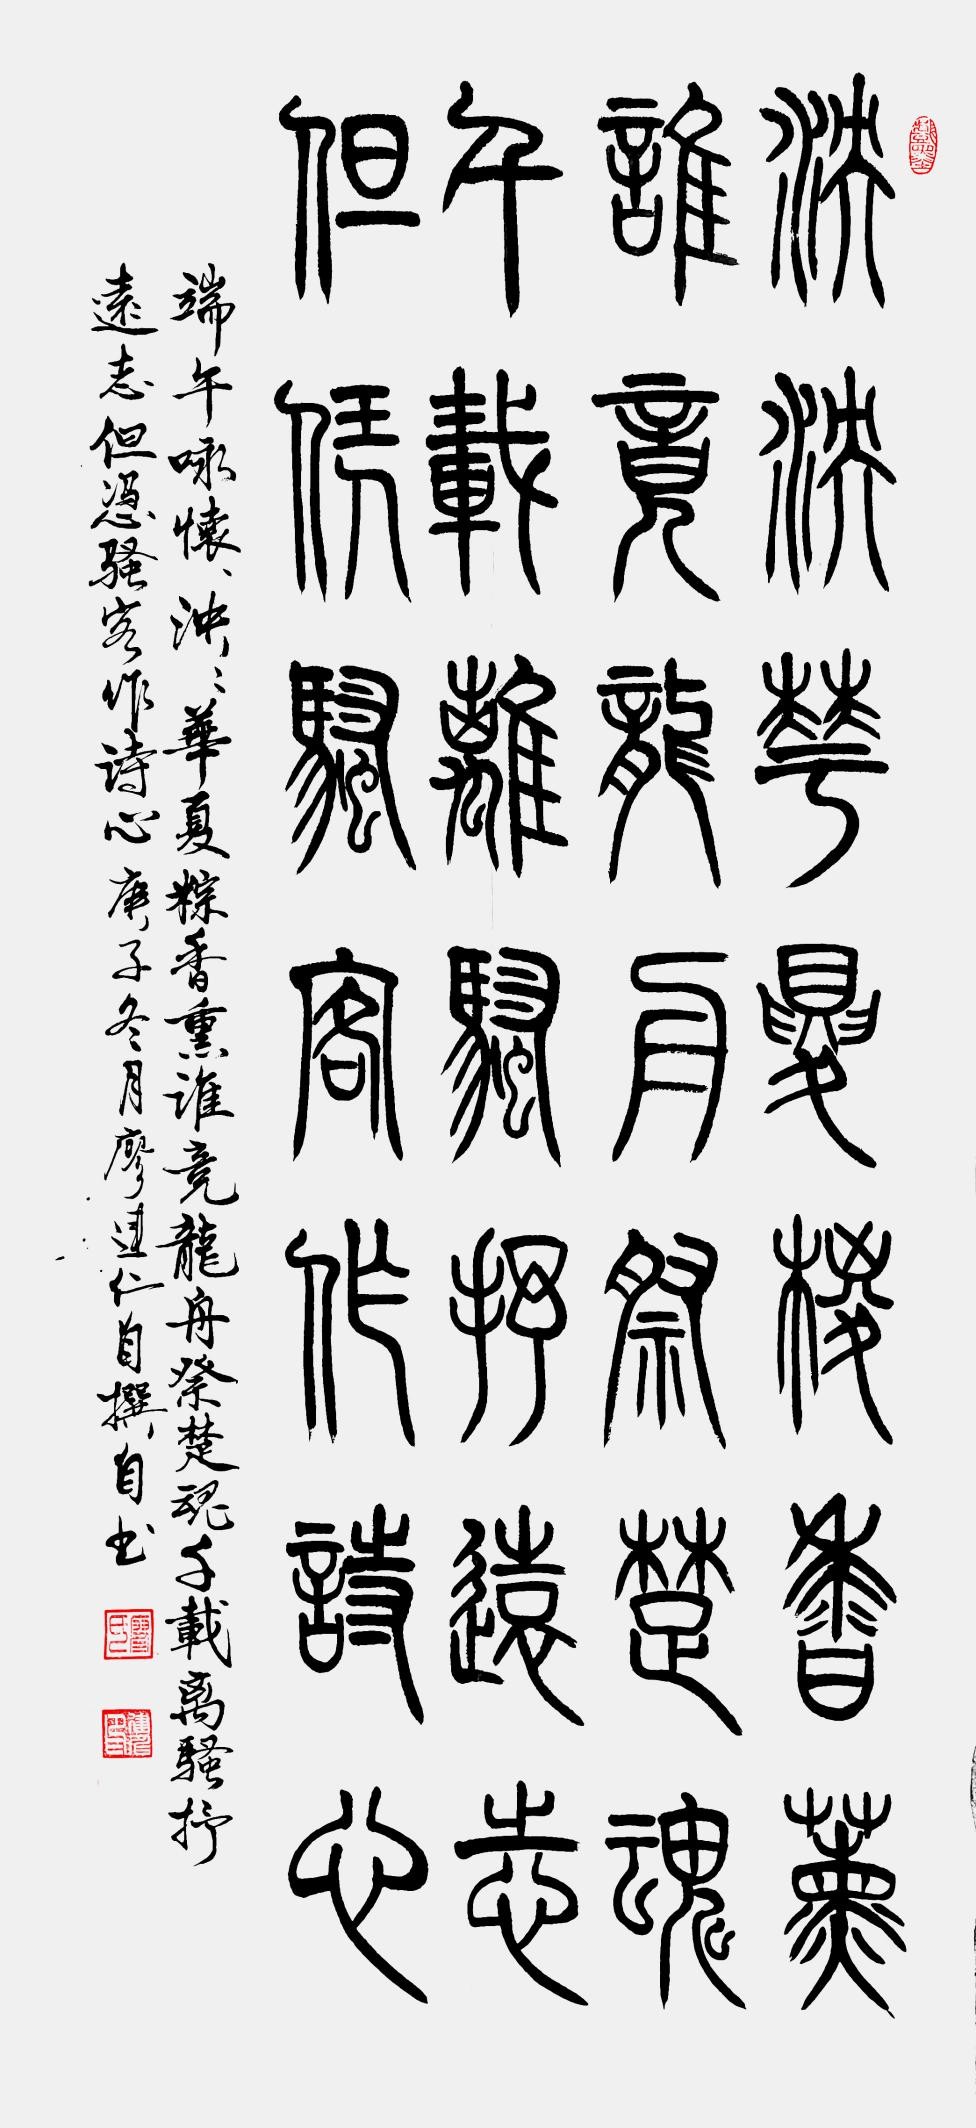 泱泱華夏粽香薰
誰竟龍舟祭楚魂
千載離騷抒遠志
但凭騷客作詩心
端午咏懷、泱〻華夏粽香熏誰竞龍舟祭楚魂千載离騷抒
遠志但凭騷客作詩心庚子冬月廖建仁自撰自书